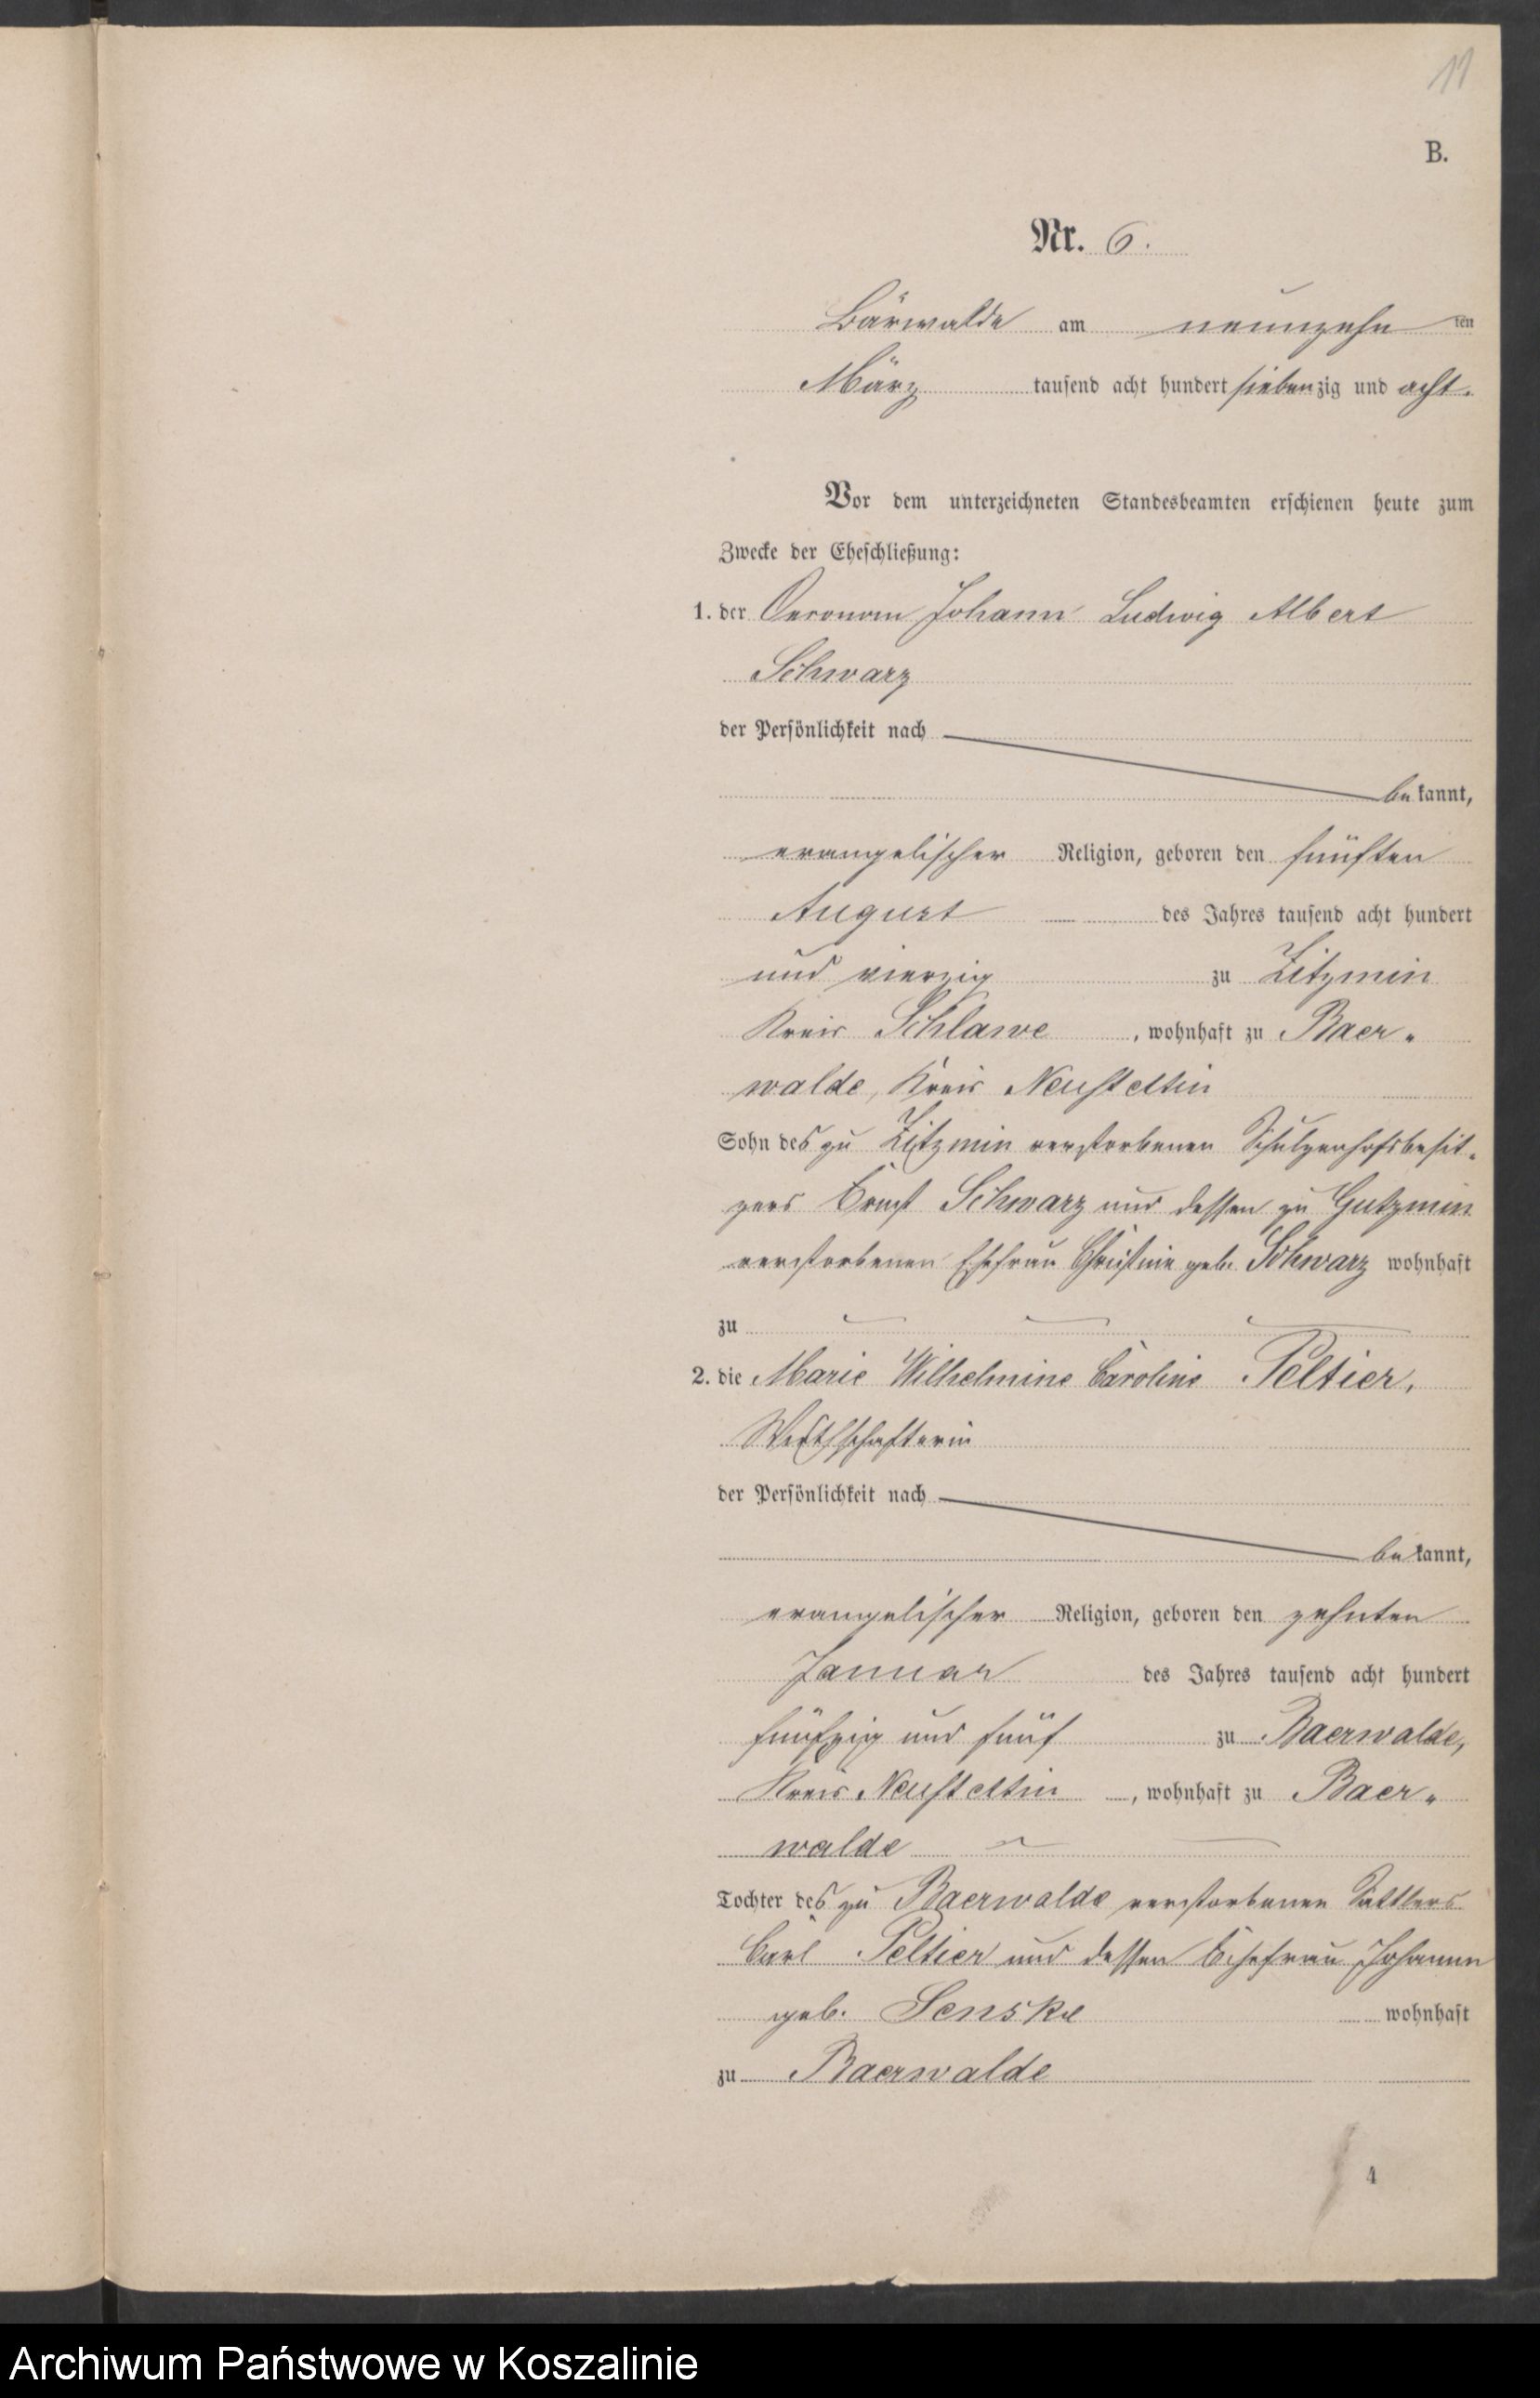 11
B.
Nr. 6.
Bärwalde am neunzehn ten
März tausend acht hundert siebenzig und acht.
Vor dem unterzeichneten Standesbeamten erschienen heute zum
Zwecke der Eheschließung:
1. der Oeconom Johann Ludwig Albert
Schwarz
der Persönlichkeit nach
bekannt,
evangelischer Religion, geboren den fünften
August des Jahres tausend acht hundert
und vierzig zu Zitzmin
Kreis Schlawe, wohnhaft zu Baer-
walde, Kreis Neustettin
Sohn des zu Zitzmin verstorbenen Schulzenhofsbesit-
zers Ernst Schwarz und dessen zu Gutzmin
verstorbenen Ehefrau Christine geb. Schwarz wohnhaft
zu
2. die Marie Wilhelmine Caroline Peltier,
Wirthschafterin
der Persönlichkeit nach
bekannt,
evangelischer Religion, geboren den zehnten
Januar des Jahres tausend acht hundert
fünfzig und fünf zu Baerwalde,
Kreis Neustettin, wohnhaft zu Baer-
walde
Tochter des zu Baerwalde verstorbenen Sattlers
Carl Peltier und dessen Ehefrau Johanne
geb. Senske wohnhaft
zu Baerwalde
4
Archiwum Państwowe w Koszalinie